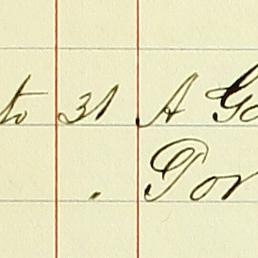 to 31 A Go
. Por